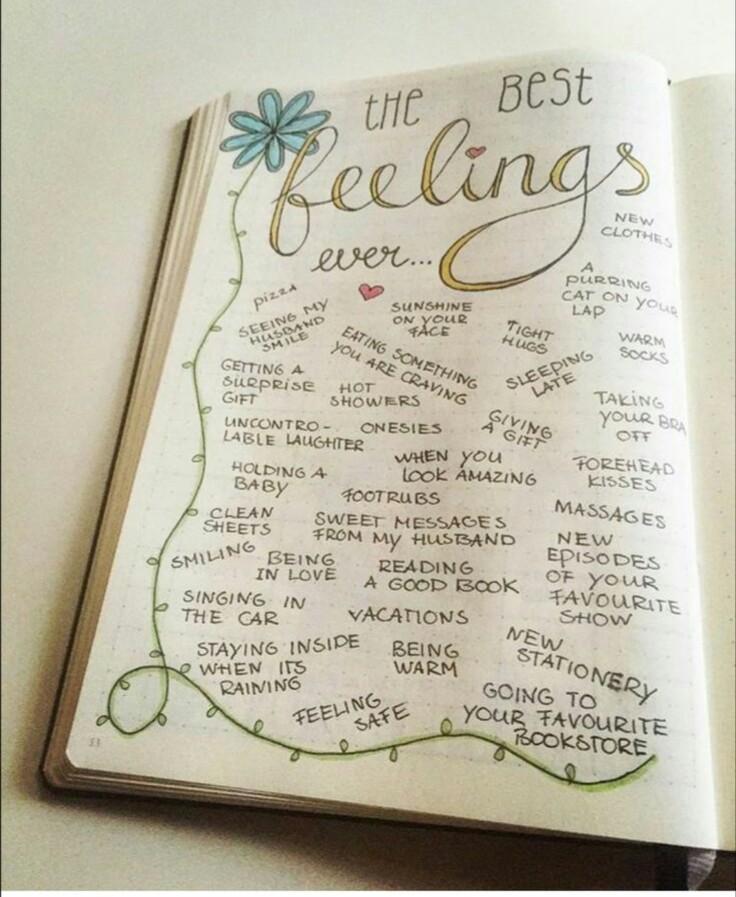 THE BEST
feelings
ever...
NEW
CLOTHES
A
PURRING
CAT ON YOUR
LAP
PIZZA
SEEING MY
HUSBAND
SMILE
SUNSHINE
ON YOUR
FACE
TIGHT
HUGS
WARM
SOCKS
EATING SOMETHING
YOU ARE CRAVING
SLEEPING
LATE
GETTING A
SURPRISE
GIFT
HOT
SHOWERS
TAKING
YOUR BRA
OFF
UNCONTRO-
LABLE LAUGHTER
ONESIES
GIVING
A GIFT
HOLDING A
BABY
WHEN YOU
LOOK AMAZING
FOREHEAD
KISSES
FOOTRUBS
CLEAN
SHEETS
SWEET MESSAGES
FROM MY HUSBAND
MASSAGES
SMILING
BEING
IN LOVE
READING
A GOOD BOOK
NEW
EPISODES
OF YOUR
FAVOURITE
SHOW
SINGING IN
THE CAR
VACATIONS
STAYING INSIDE
WHEN ITS
RAINING
BEING
WARM
NEW
STATIONERY
FEELING
SAFE
GOING TO
YOUR FAVOURITE
BOOKSTORE